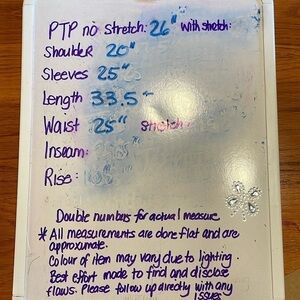 PTP no stretch: 26" With stretch:
Shoulder 20"
Sleeves 25"
Length 33.5"
Waist 25" stretch:
Inseam:
Rise:
Double numbers for actual measure
* All measurements are done flat and are
approximate.
Colour of item may vary due to lighting.
Best effort made to find and disclose
flaws. Please follow up directly with any
issues